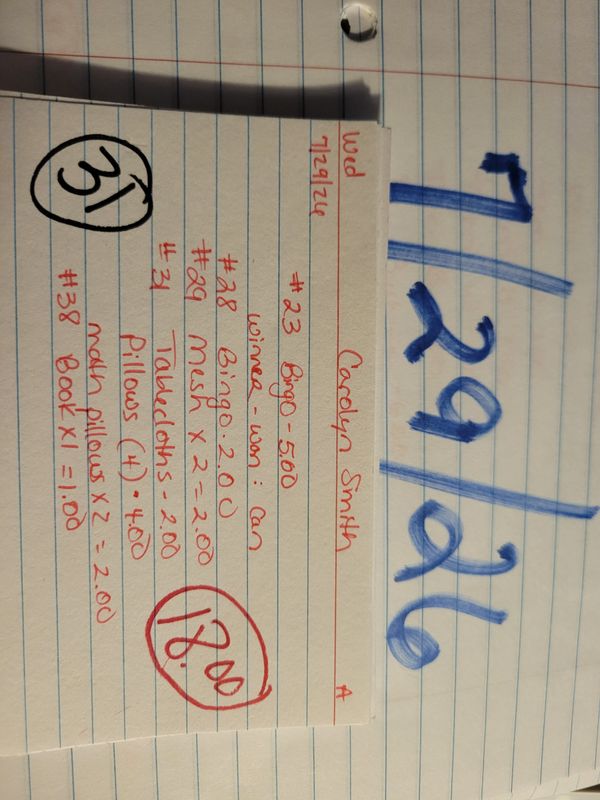 7/29/26
Wed
7/29/26
Carolyn Smith A
#23 Bingo - 5.00
winner - won: can
#28 Bingo. 2.00
#29 Mesh x 2 = 2.00
#31 Tablecloths - 2.00
Pillows (4) • 4.00
math pillows x 2 = 2.00
#38 Book x 1 = 1.00
18.00
31